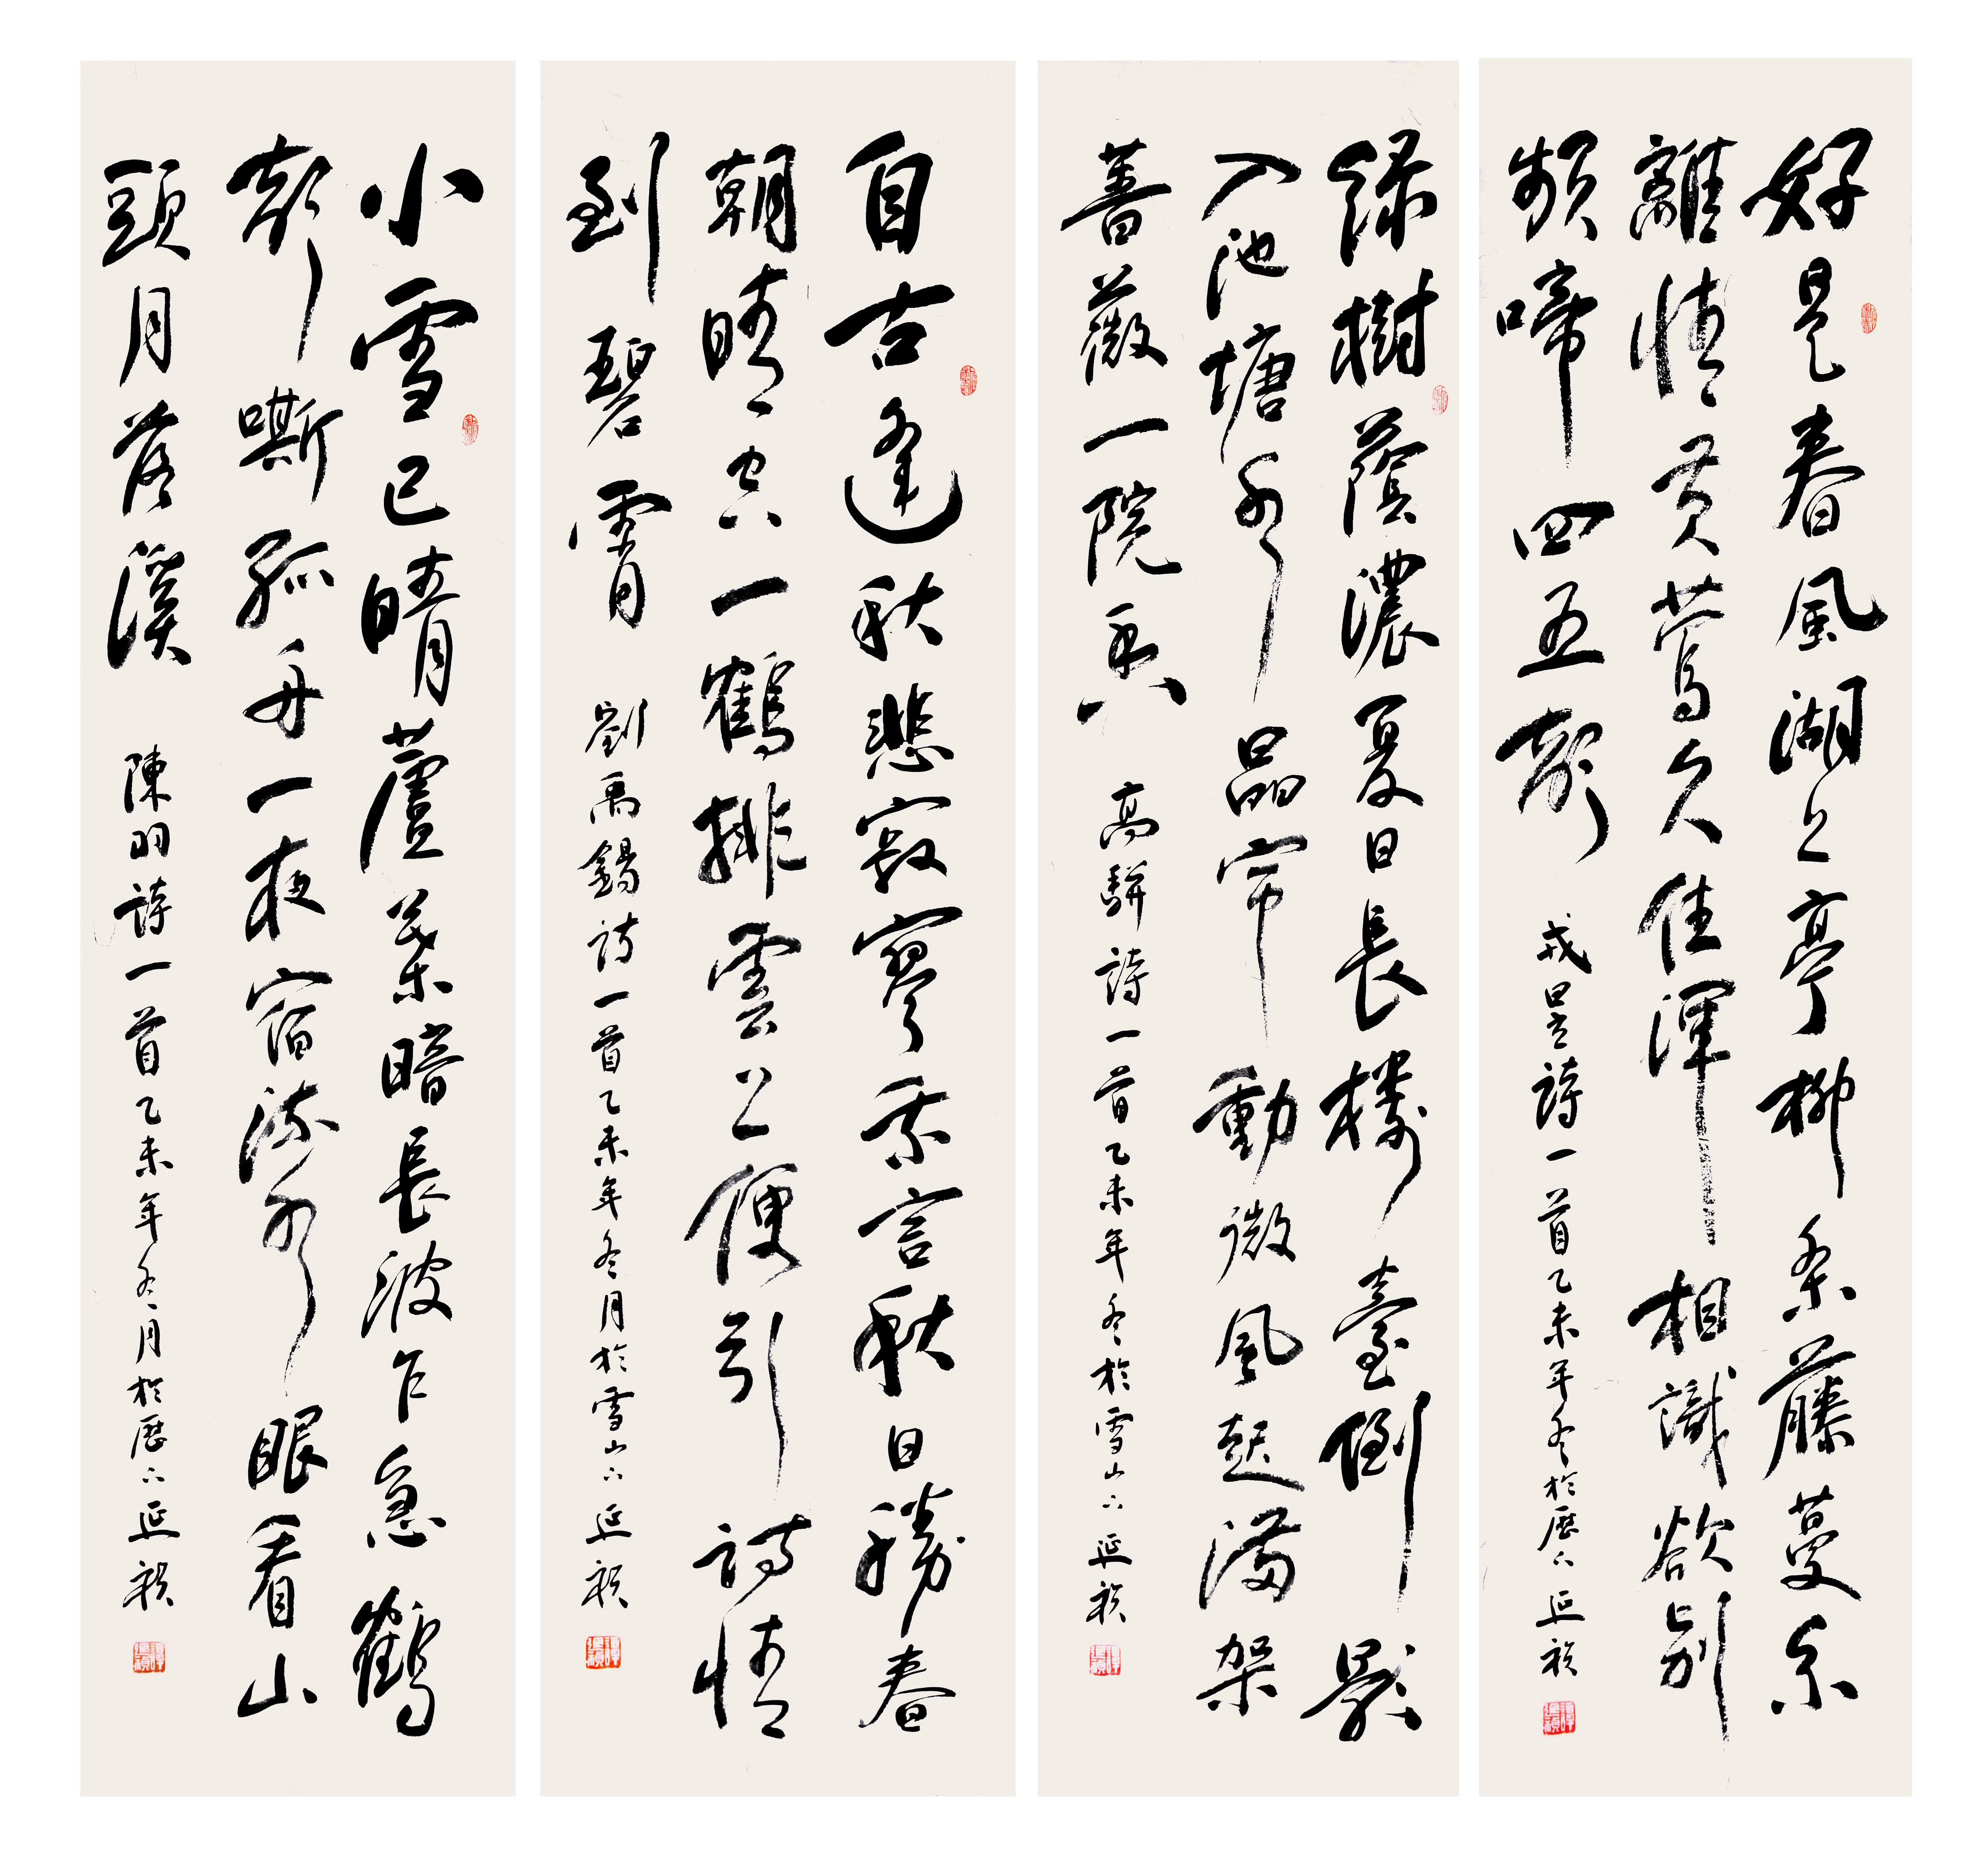 好是春風湖上亭柳條藤蔓系
離情黄鶯久住渾相識欲别
頻啼四五聲 戎昱詩一首乙未年冬於歷下延禎
緑樹蔭濃夏日長樓臺倒影
入池塘水晶帘動微風起滿架
薔薇一院香 高駢詩一首乙未年冬於雪山下延禎
自古逢秋悲寂寥我言秋日勝春
朝晴空一鶴排雲上便引詩情
到碧霄 劉禹錫詩一首乙未年冬月於雪山下延禎
小雪已晴蘆葉暗長波乍急鶴
聲嘶孤舟一夜宿流水眼看山
頭月落溪 陳羽詩一首乙未年冬月於歷下延禎